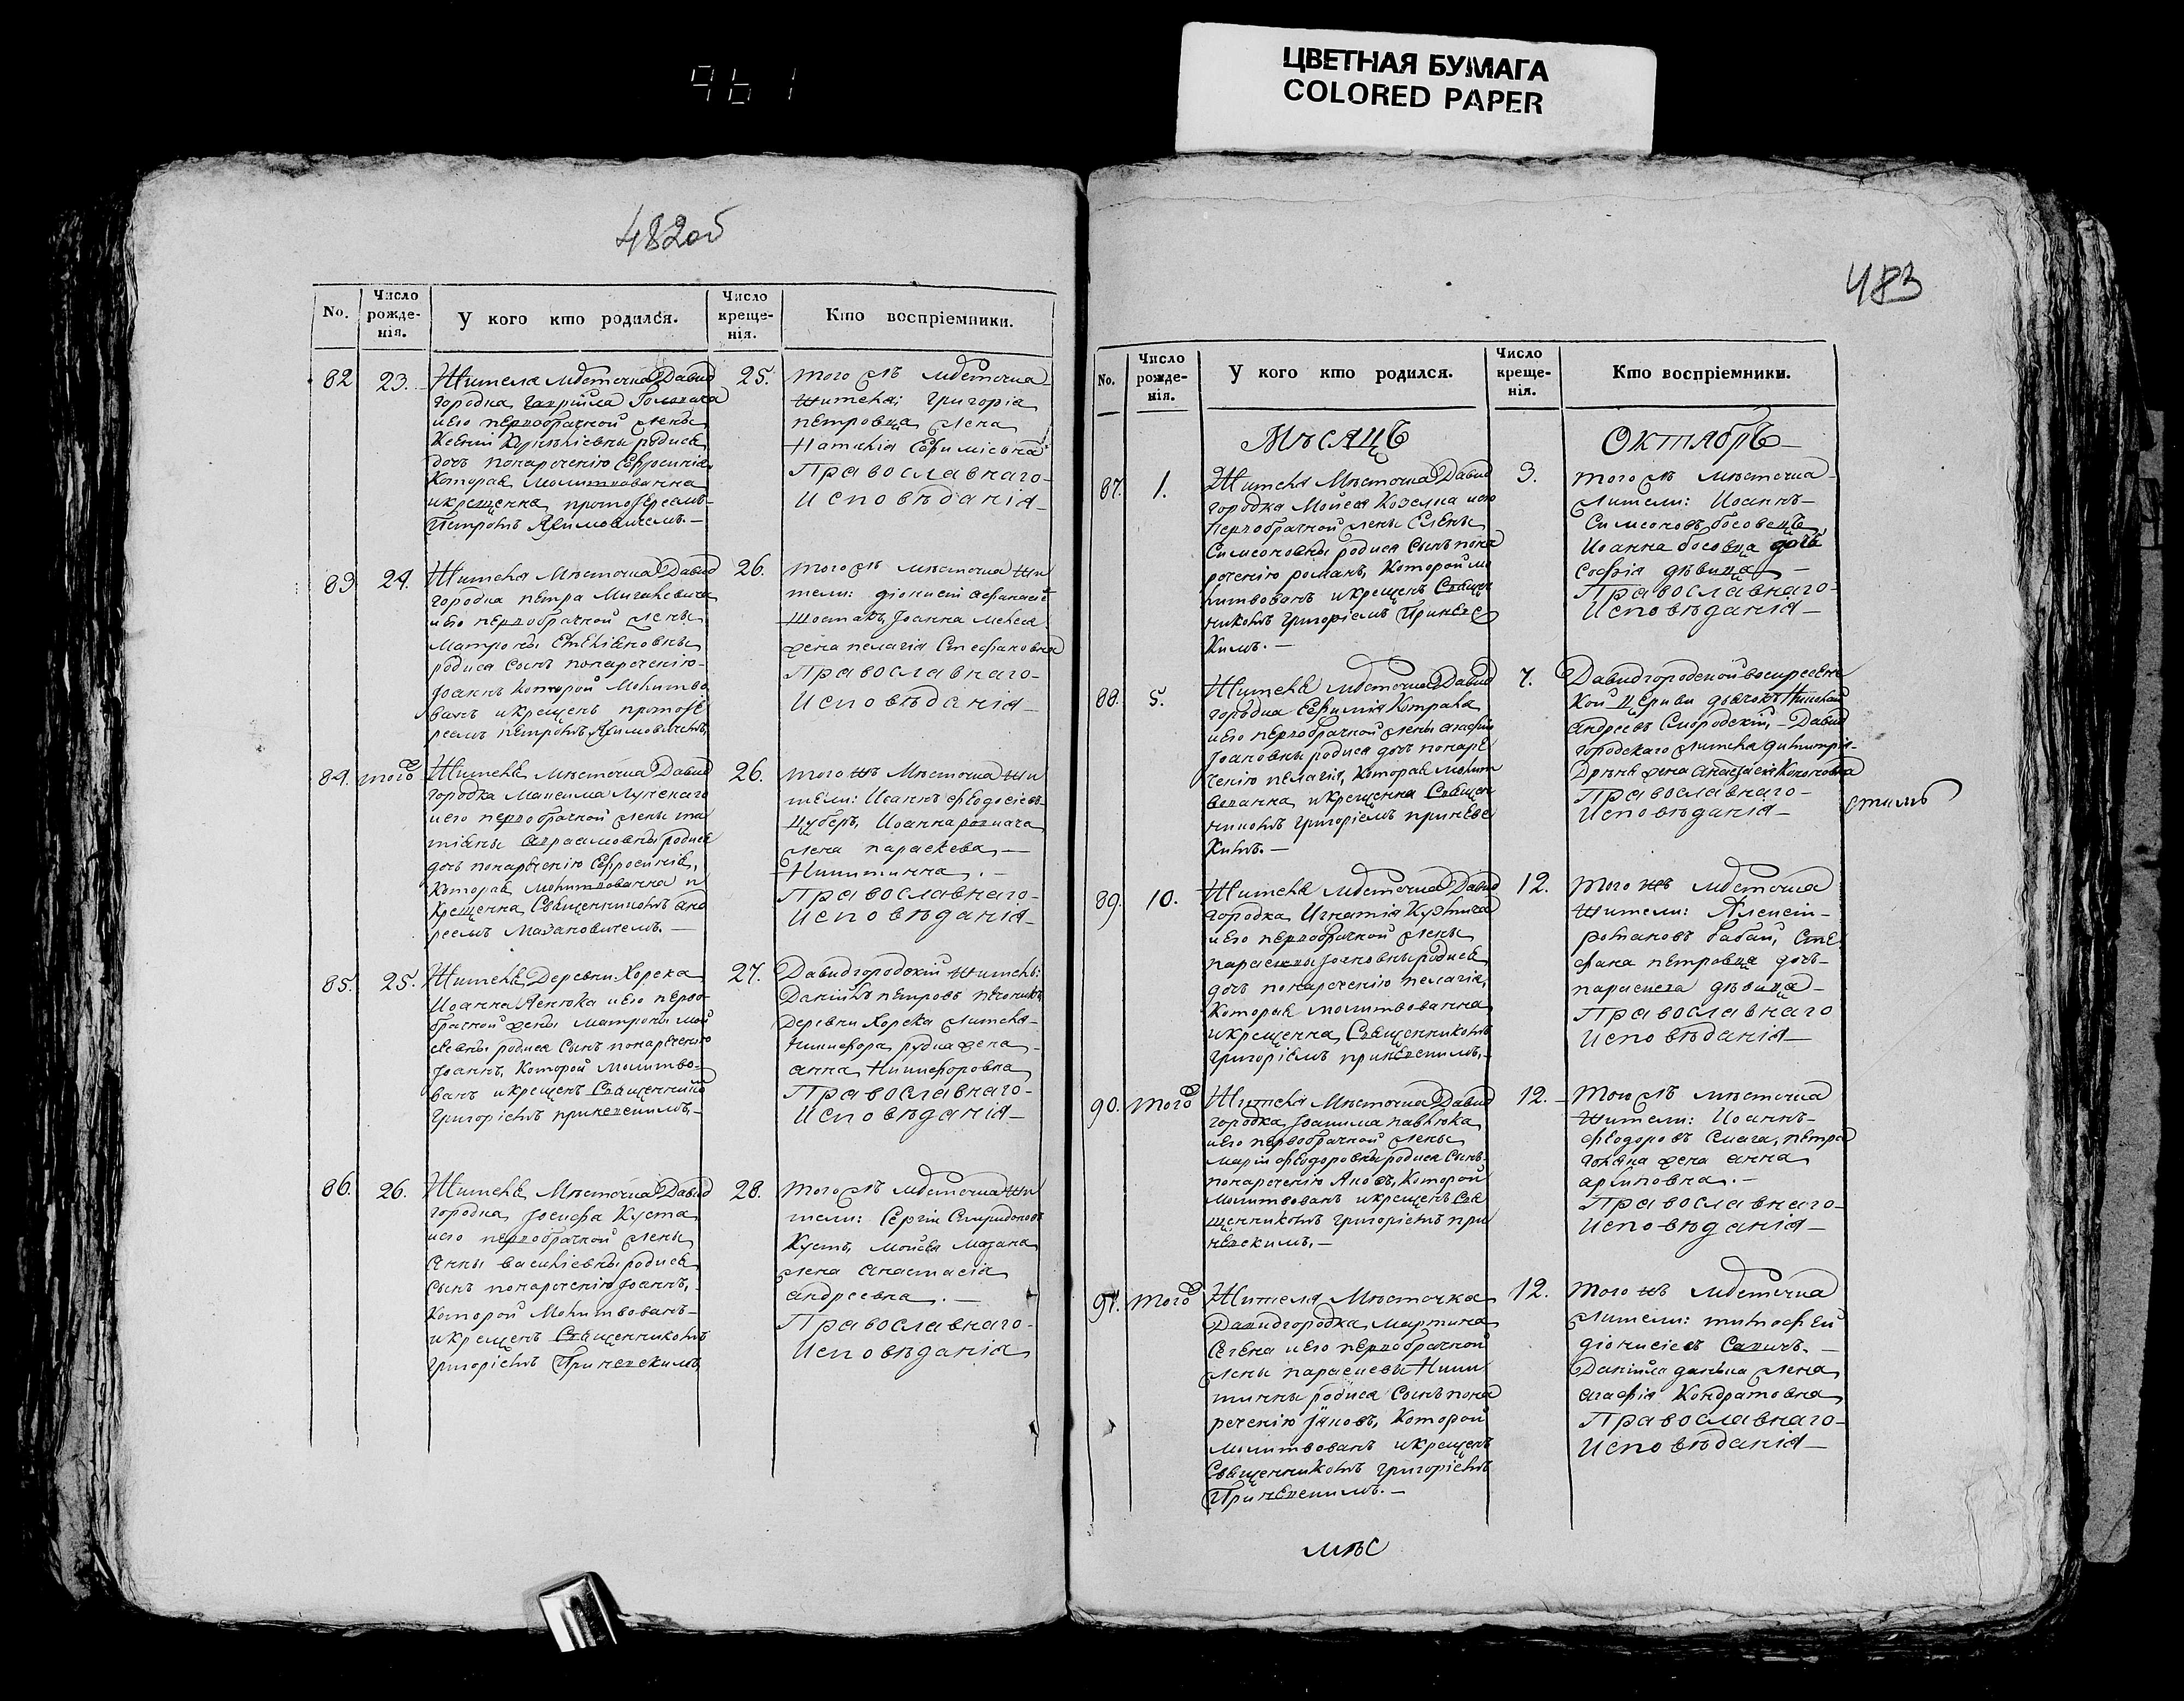 961
ЦВЕТНАЯ БУМАГА
COLORED PAPER
482об
No.
Число рожде-нія.
У кого кто родился.
Число креще-нія.
Кто воспріемники.
82
23.
Жителя мѣстечка Давид
городка Гавріила
иего первобрачной жены
Ксеніи родися
дочь понареченію Евфросинія
Которая молитвованна
икрещенна протоіереемъ
Петромъ Якимовичемъ. —
25.
того жъ мѣстечка
жители: Григорія
петровца жена
Наталія Ефимієвна
Православнаго
Исповѣданія
83
24.
Жителя Мѣстечка Давид
городка петра
иего первобрачной жены
Матроны
родися сынъ понареченію
Іоаннъ которой молитво
ванъ икрещенъ протоіе
реемъ петромъ Якимовичемъ,
26.
того жъ мѣстечка жи
тели: діонисій афанасіе
Шостакъ, Іоанна
жена пелагія Стефановна
Православнаго
Исповѣданія
84.
того
Жителя мѣстечка Давид
городка Максима Лунскаго
иего первобрачной жены та
тіаны родися
дочь понареченію Евфросинія,
Которая молитвованна и
Крещенна Священникомъ анд
реемъ Мазановичемъ. —
26.
того жъ Мѣстечка жи
тели: Иоаннъ феодосіевъ
Цуберъ, Иоанна
жена параскева, —
Никитична. —
Православнаго
Исповѣданія
85.
25.
Жителя Деревни Хорска
Иоанна иего перво
брачной жены Матроны Мои
сеевны родися сынъ понареченію
Іоаннъ, Которой Молитво
ванъ икрещенъ Священнико
Григоріемъ приневскимъ,
27.
Давидгородскій житель:
Даніилъ петровъ
Деревни Хорска жителя
Никифора рудца жена
анна Никифоровна
Православнаго
Исповѣданія
86.
26.
Жителя Мѣстечка Давид
городка Іосифа Куста
иего первобрачной жены
Анны василіевны родися
сынъ понареченію Іоаннъ,
Которой Молитвованъ
икрещенъ Священникомъ
Григоріемъ Приневскимъ
28.
того жъ мѣстечка жи
тели: Сергій Спиридоновъ
Кустъ, Моисея Мазана
жена Анастасія
Андреевна. —
Православнаго
Исповѣданія
483
No.
Число рожде-нія.
У кого кто родился.
Число креще-нія.
Кто воспріемники.
Мѣсяцъ
Октябрь
87.
1.
Жителя Мѣстечка Давид
городка Мойсея Козелка иего
Первобрачной жены Елены
Симеоновны родися Сынъ пона
реченію романъ, Которой мо
литвованъ икрещенъ Священ
никомъ Григоріемъ Приневс
Кимъ. —
3.
того жъ мѣстечка
жители: Иоаннъ
Симеоновъ босовецъ,
Иоанна босовца дочь
Софія дѣвица —
Православнаго
Исповѣданія
88.
5.
Жителя мѣстечка Давид
городка Ефимія
иего первобрачной жены
Іоановны родися дочь понаре
ченію пелагія, Которая молит
вованна икрещенна Священ
никомъ Григоріемъ приневс
Кимъ. —
7.
Давидгородской воскресенс
Кой церкви дьячокъ Николай
Андреевъ Смородскій, — Давид
городскаго жителя димитрія
жена Анастасія Кононовна
Православнаго
Исповѣданія
89.
10.
Жителя мѣстечка Давид
городка Игнатія Кузмича
иего первобрачной жены
параскевы родися
дочь понареченію пелагія,
Которая молитвованна
икрещенна Священникомъ
Григоріемъ приневскимъ,
12.
того жъ мѣстечка
жители: Алексій
романовъ бабай, Сте
фана петровца дочь
параскева дѣвица
Православнаго
Исповѣданія
90.
того
Жителя Мѣстечка Давид
городка Іоакима павлюка
иего первобрачной жены
Маріи феодоровны родися сынъ
понареченію Яковъ, Которой
молитвованъ икрещенъ Свя
щенникомъ Григоріемъ при
невскимъ. —
12.
того жъ мѣстечка
жители: Иоаннъ
феодоровъ Смага, петра
жена анна
архиповна. —
Православнаго
Исповѣданія
91.
того
Жителя Мѣстечка
Давидгородка, Мартина
иего первобрачной
жены параскевы Ники
тичны родися Сынъ пона
реченію Іаковъ, Которой
молитвованъ икрещенъ
Священникомъ Григоріемъ
Приневскимъ. —
12.
того жъ мѣстечка
жители: тимофей
діонисіевъ —
Даніила жена
агафія Кондратовна
Православнаго
Исповѣданія
мѣс